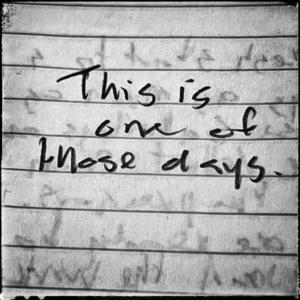 This is
one of
those days.